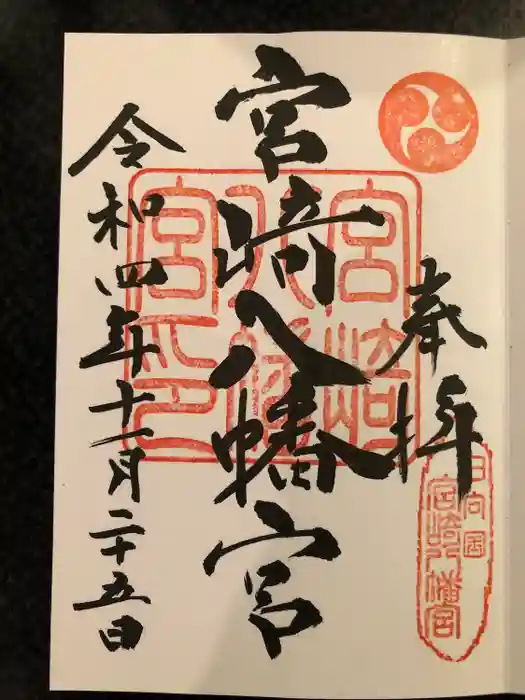 奉拝
日向国
宮崎八幡宮
宮崎八幡宮
宮崎八幡宮印
令和四年十一月二十五日